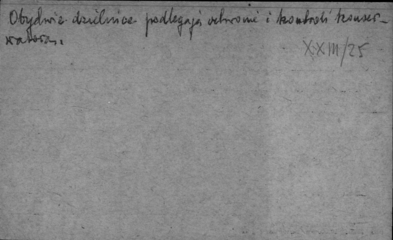 Obydwie dzielnice podlegają ochronie i kontroli konser-
watora.
XXIII/25